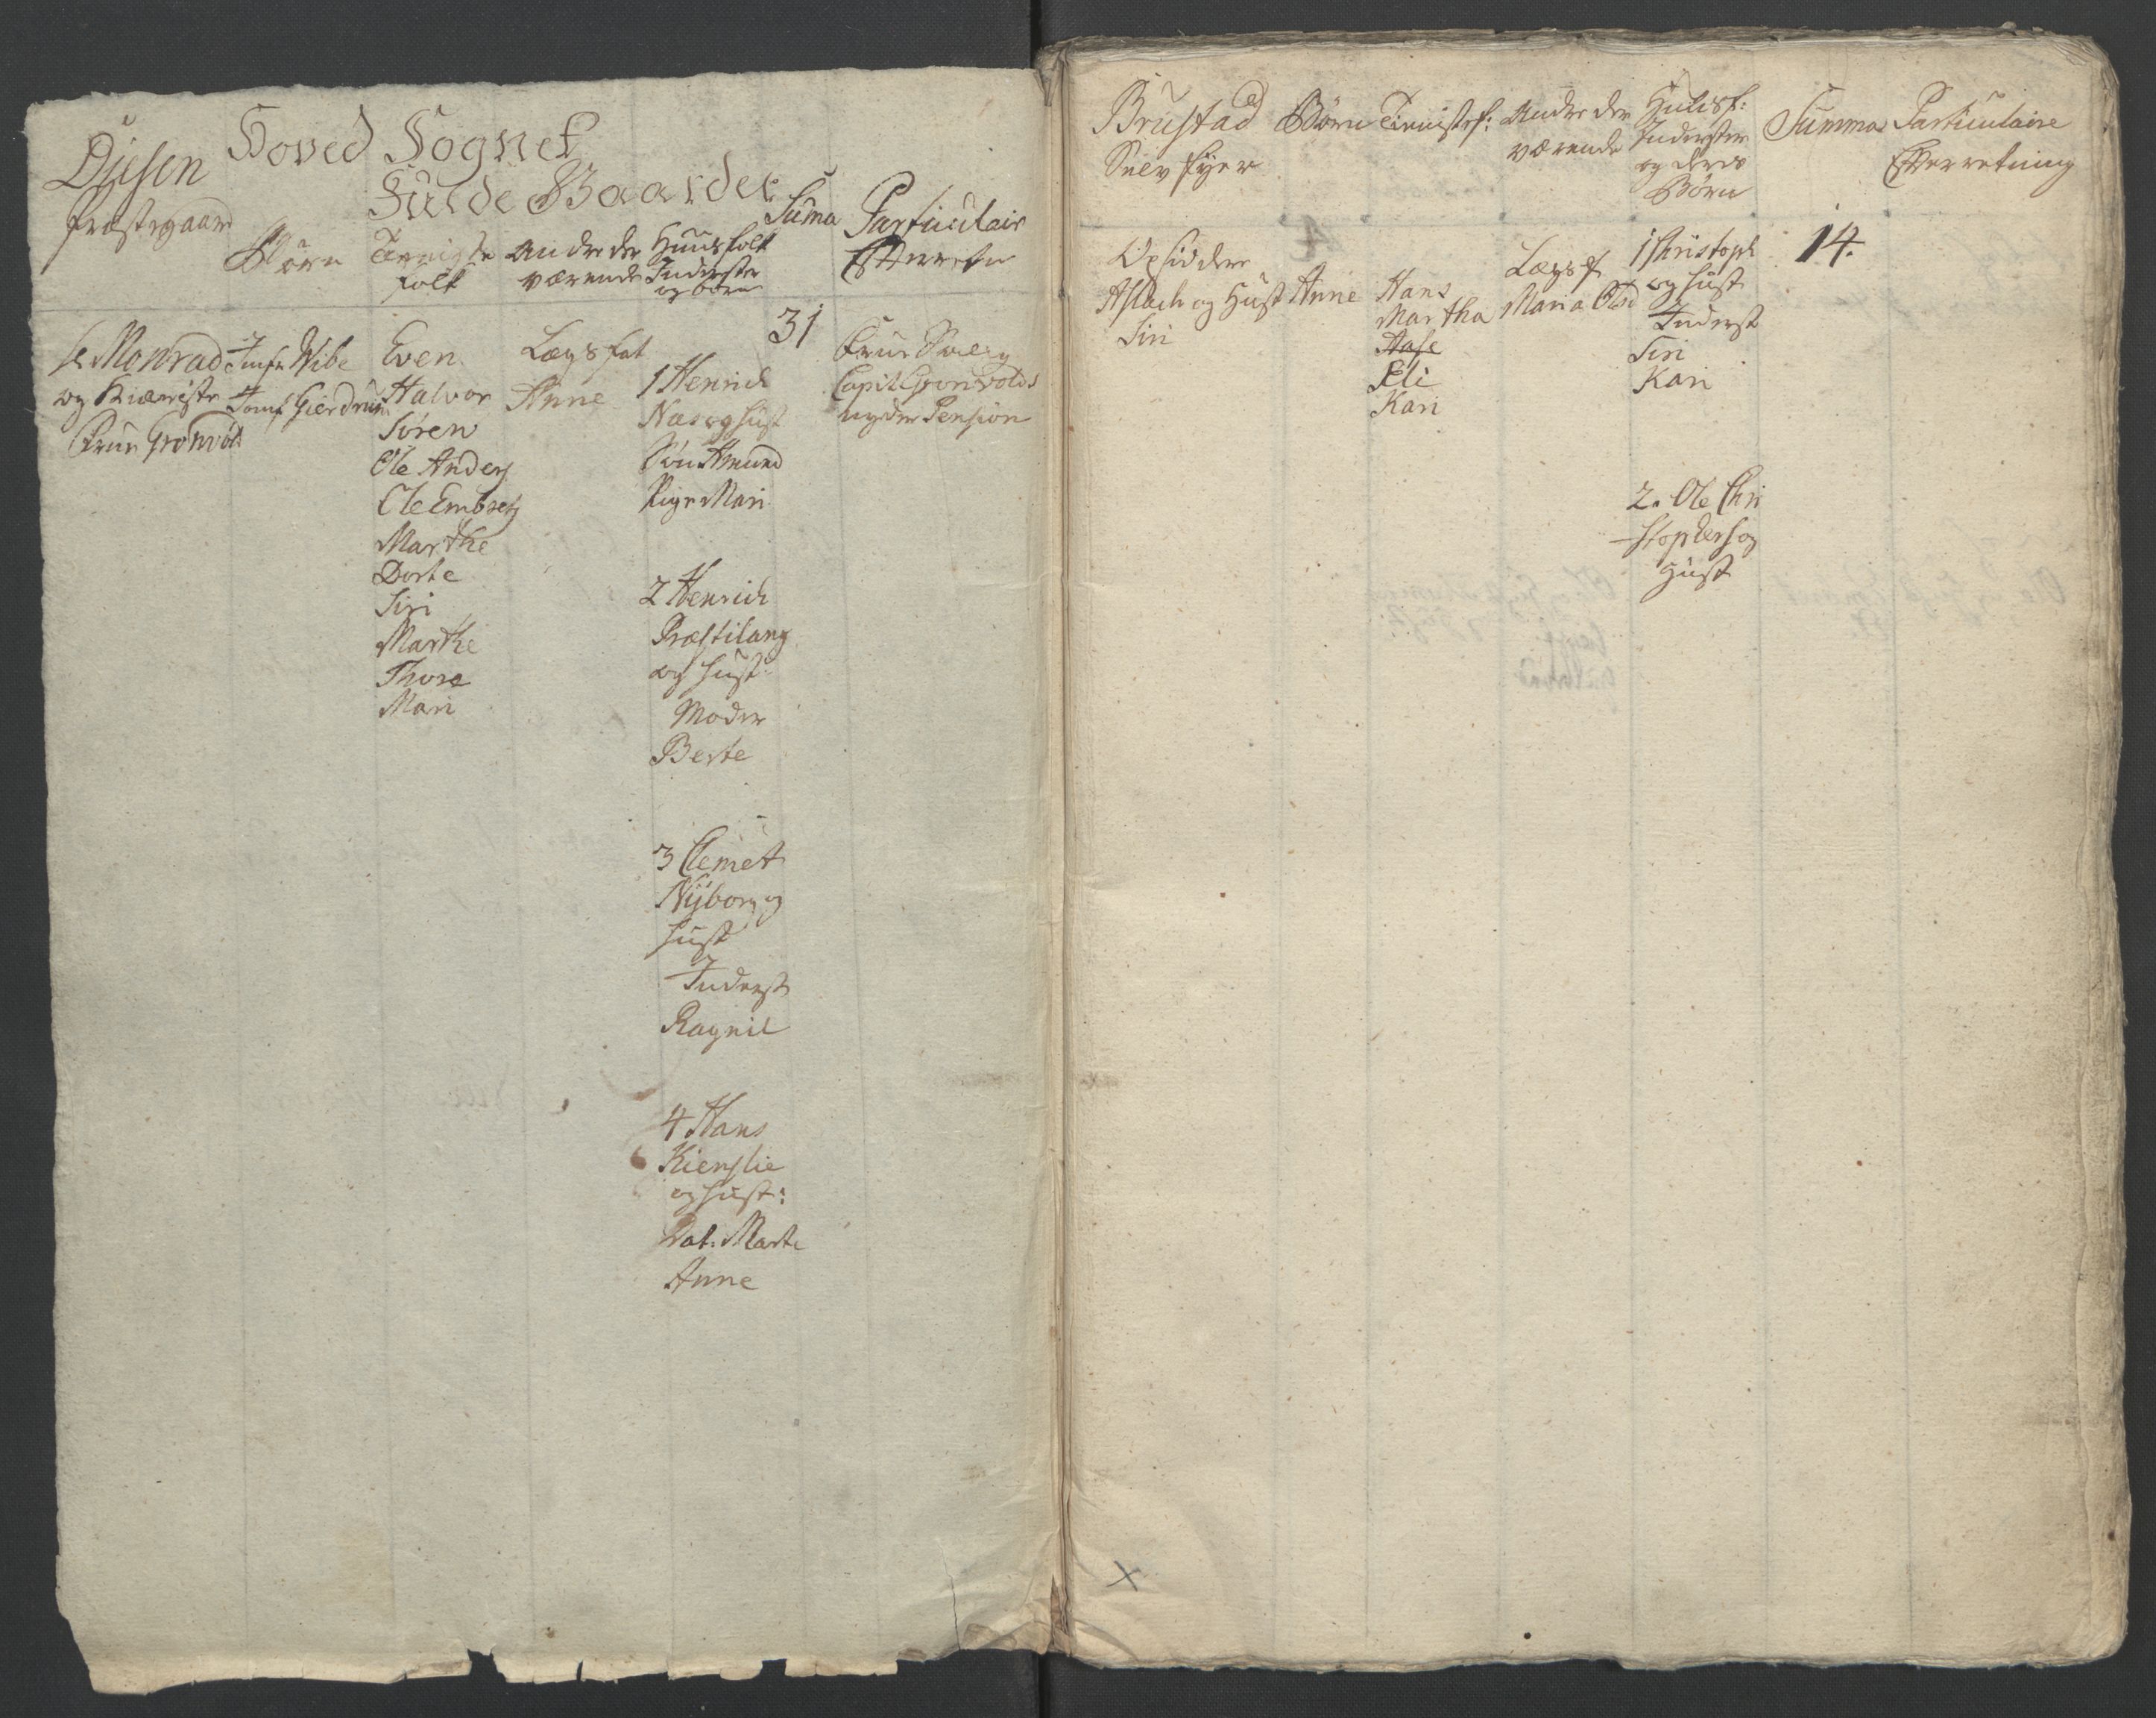 Hoved Sognet
Fulde Gaarder
Øiesen
Præstegaard
Børn
Tienniste
folk
Andre der
værende
Huusfolk
Inderster
og Børn
Suma
Particulair
Efterretn
31
hr Monrad
og Kiæreste
Frue Gronvold
Jomfr Wibe
Jomf Gierdrum
Even
Halvor
Søren
Ole Anders
Ole Embrets
Marthe
Dorte
Siri
Marthe
Thore
Mari
Lægsfat
Anne
1 Henrich
Næs og Hust
Søn Amund
Pige Mari
2 Henrich
Præstilang
og Hust
Moder
Berte
3 Clemet
Nyborg og
Hust
Inderst
Ragnil
4 Hans
Kierslie
og Hust:
Dat: Marte
Anne
Frue
Capit Gronvolds
nyder Pension
Brustad
Selv Eyer
Børn
Tienistef:
Andre der
værende
Huusf:
Inderster
og deres
Børn
Summa
Particulaire
Efterretning
Opsiddere
Aslach og Hust
Siri
Anne
Hans
Martha
Aase
Eli
Kari
Lægsf
Maria Olsd
1 Christoph
og Hust
Inderst
Siri
Kari
2. Ole Chri
stophers og
Hust
14.
x